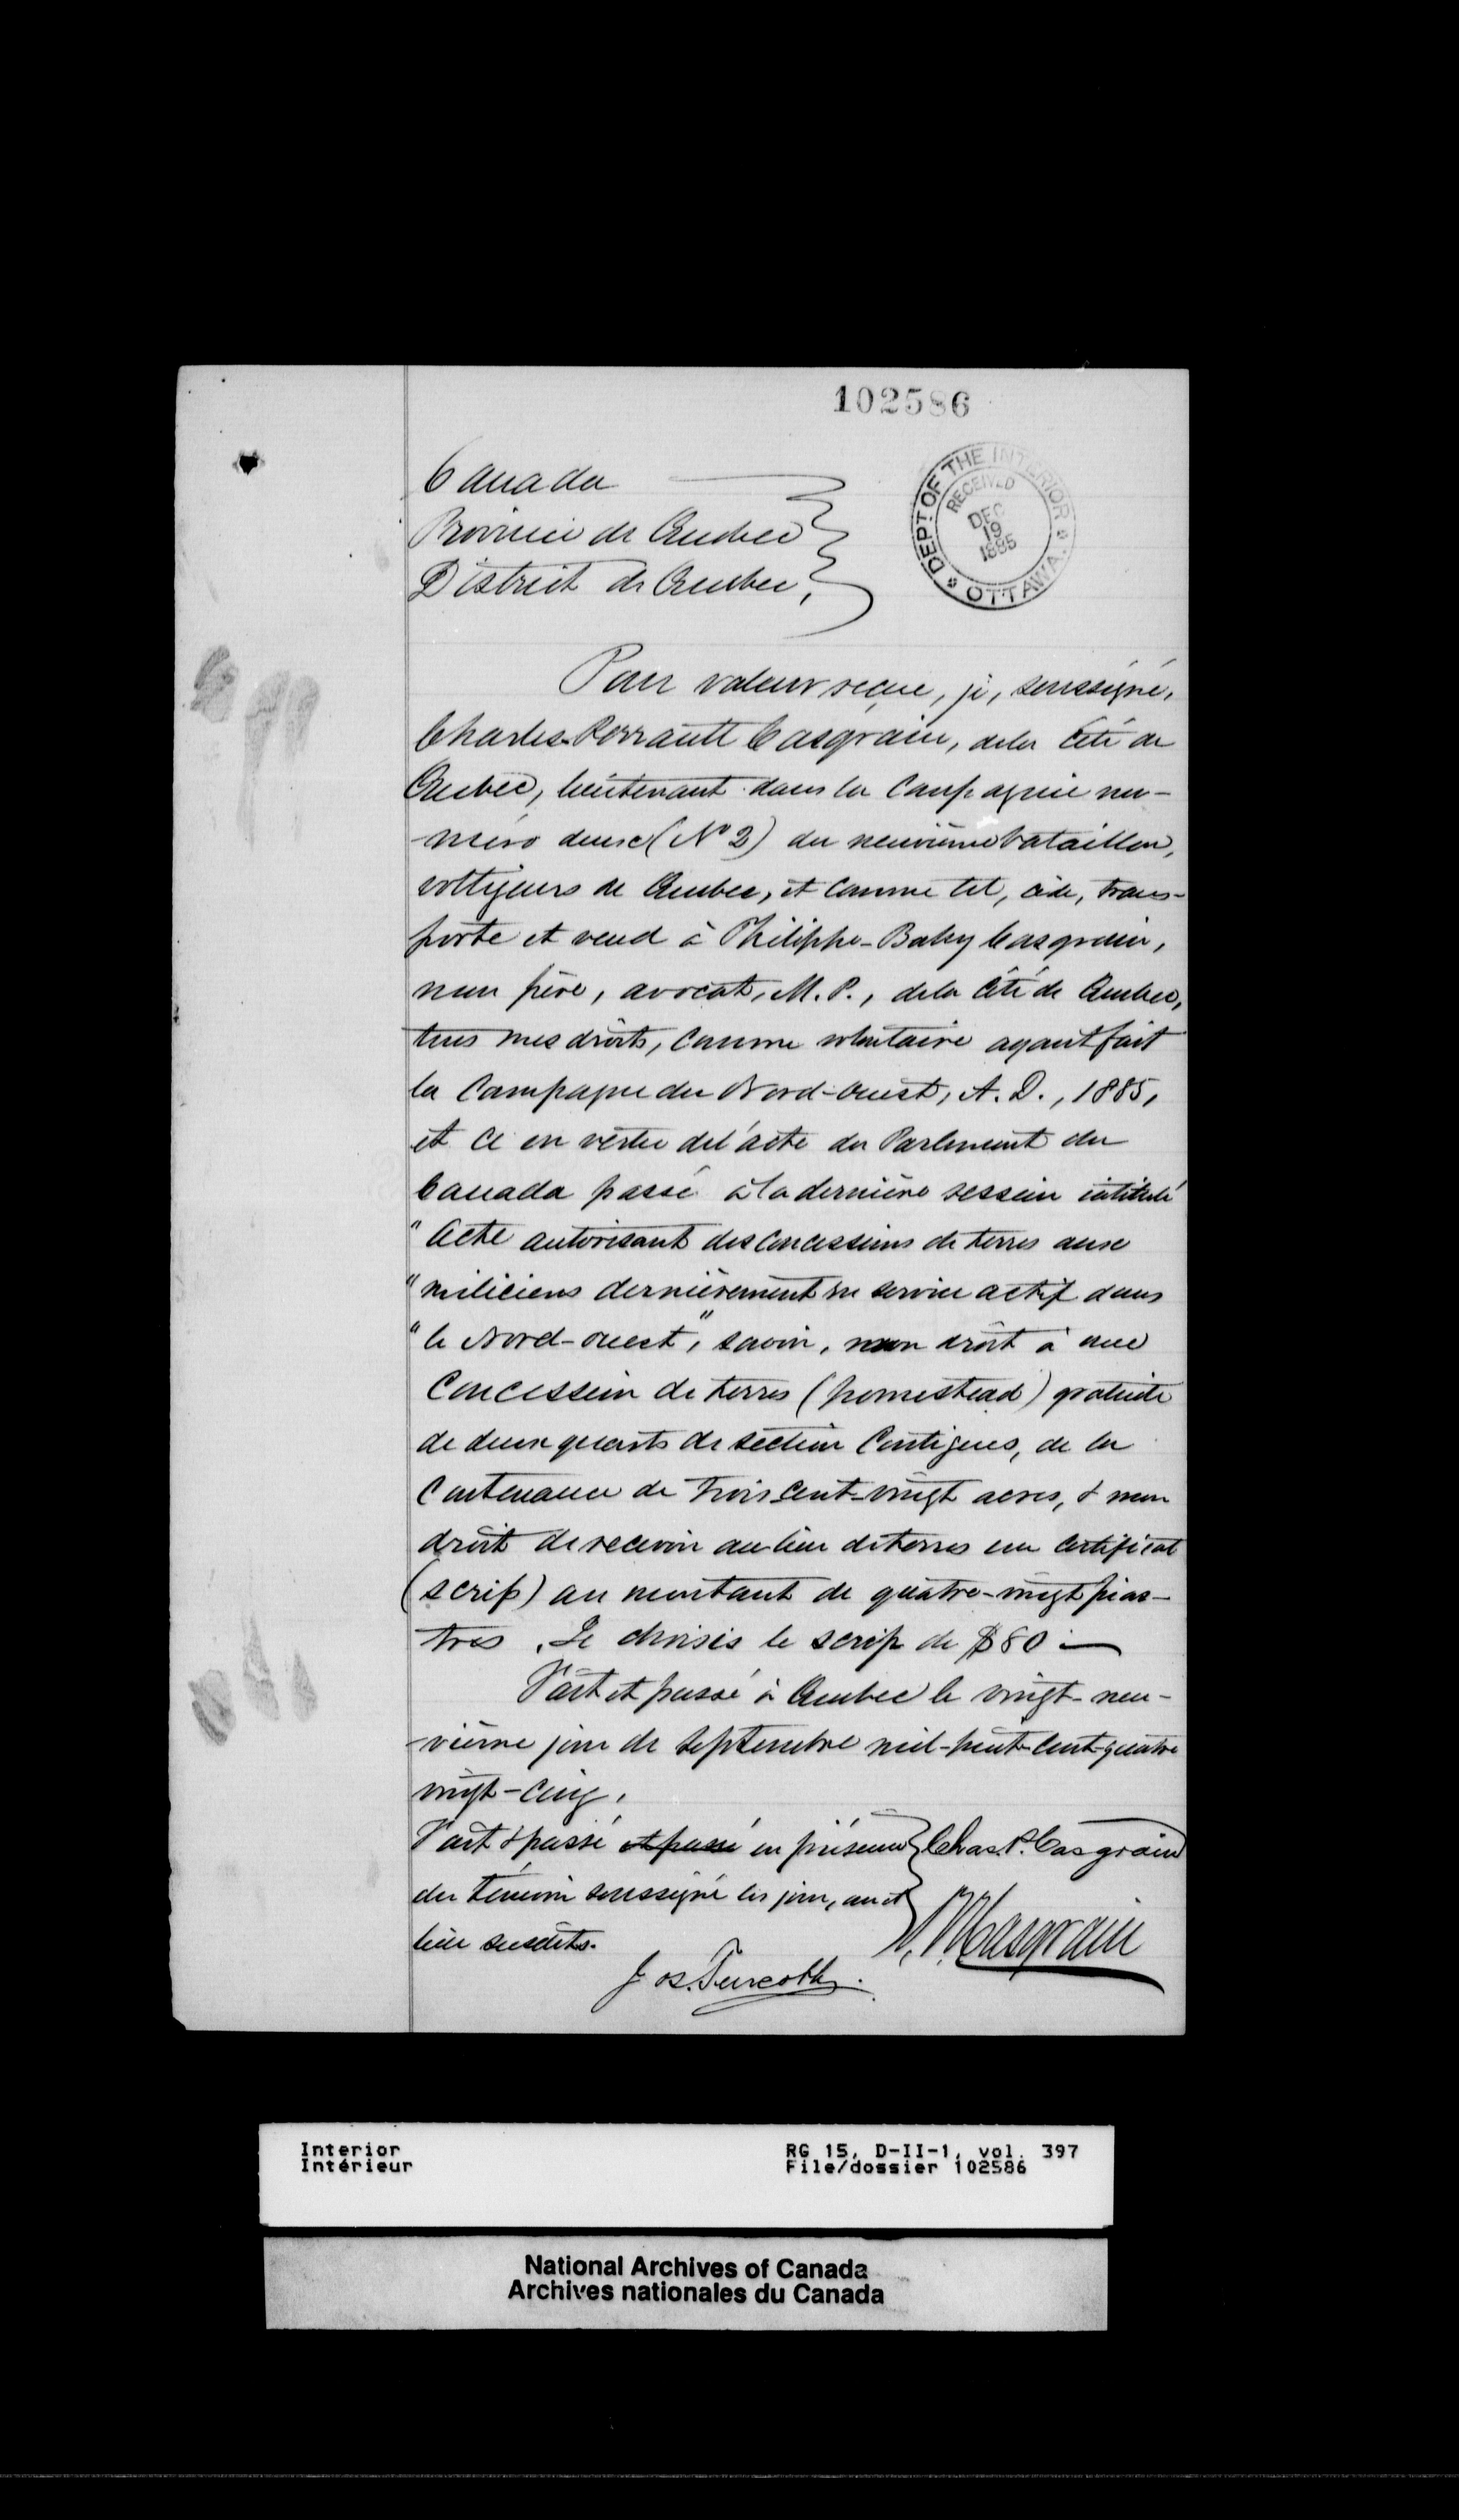 102586
DEPT OF THE INTERIOR
RECEIVED
DEC
19
1885
OTTAWA.
Canada
Province de Quebec
District de Quebec,
Pour valeur reçue, je, soussigné,
Charles-Perrault Casgrain, de la Cité de
Quebec, lieutenant dans la Compagnie nu-
-méro deux (No 2) du neuvième bataillon,
voltigeurs de Quebec, et comme tel, cède, trans-
porte et vend à Philippe-Baby Casgrain,
mon père, avocat, M. P., de la Cité de Quebec,
tous mes droits, comme volontaire ayant fait
la Campagne du Nord-Ouest, A. D., 1885,
et ce en vertu de l'acte du Parlement du
Canada passé à la dernière session intitulé
"Acte autorisant des concessions de terres aux
"miliciens dernièrement en service actif dans
"le Nord-ouest", savoir, mon droit à une
Concession de terres (homestead) gratuite
de deux quarts de section contigues, de la
Contenance de trois cent-vingt acres, & mon
droit de recevoir au lieu de terres un certificat
(scrip) au montant de quatre-vingt pias-
tres. Je choisis le scrip de $80.—
Fait et passé à Quebec le vingt-neu-
-vième jour de Septembre mil-huit-cent-quatre
vingt-cinq.
Fait & passé et passé en présence
du témoin soussigné les jour, an et
lieu susdits.
Chas. P. Casgrain
P. B. Casgrain
Jos. Turcotte.
Interior
Intérieur
RG 15, D-II-1, vol. 397
File/dossier 102586
National Archives of Canada
Archives nationales du Canada